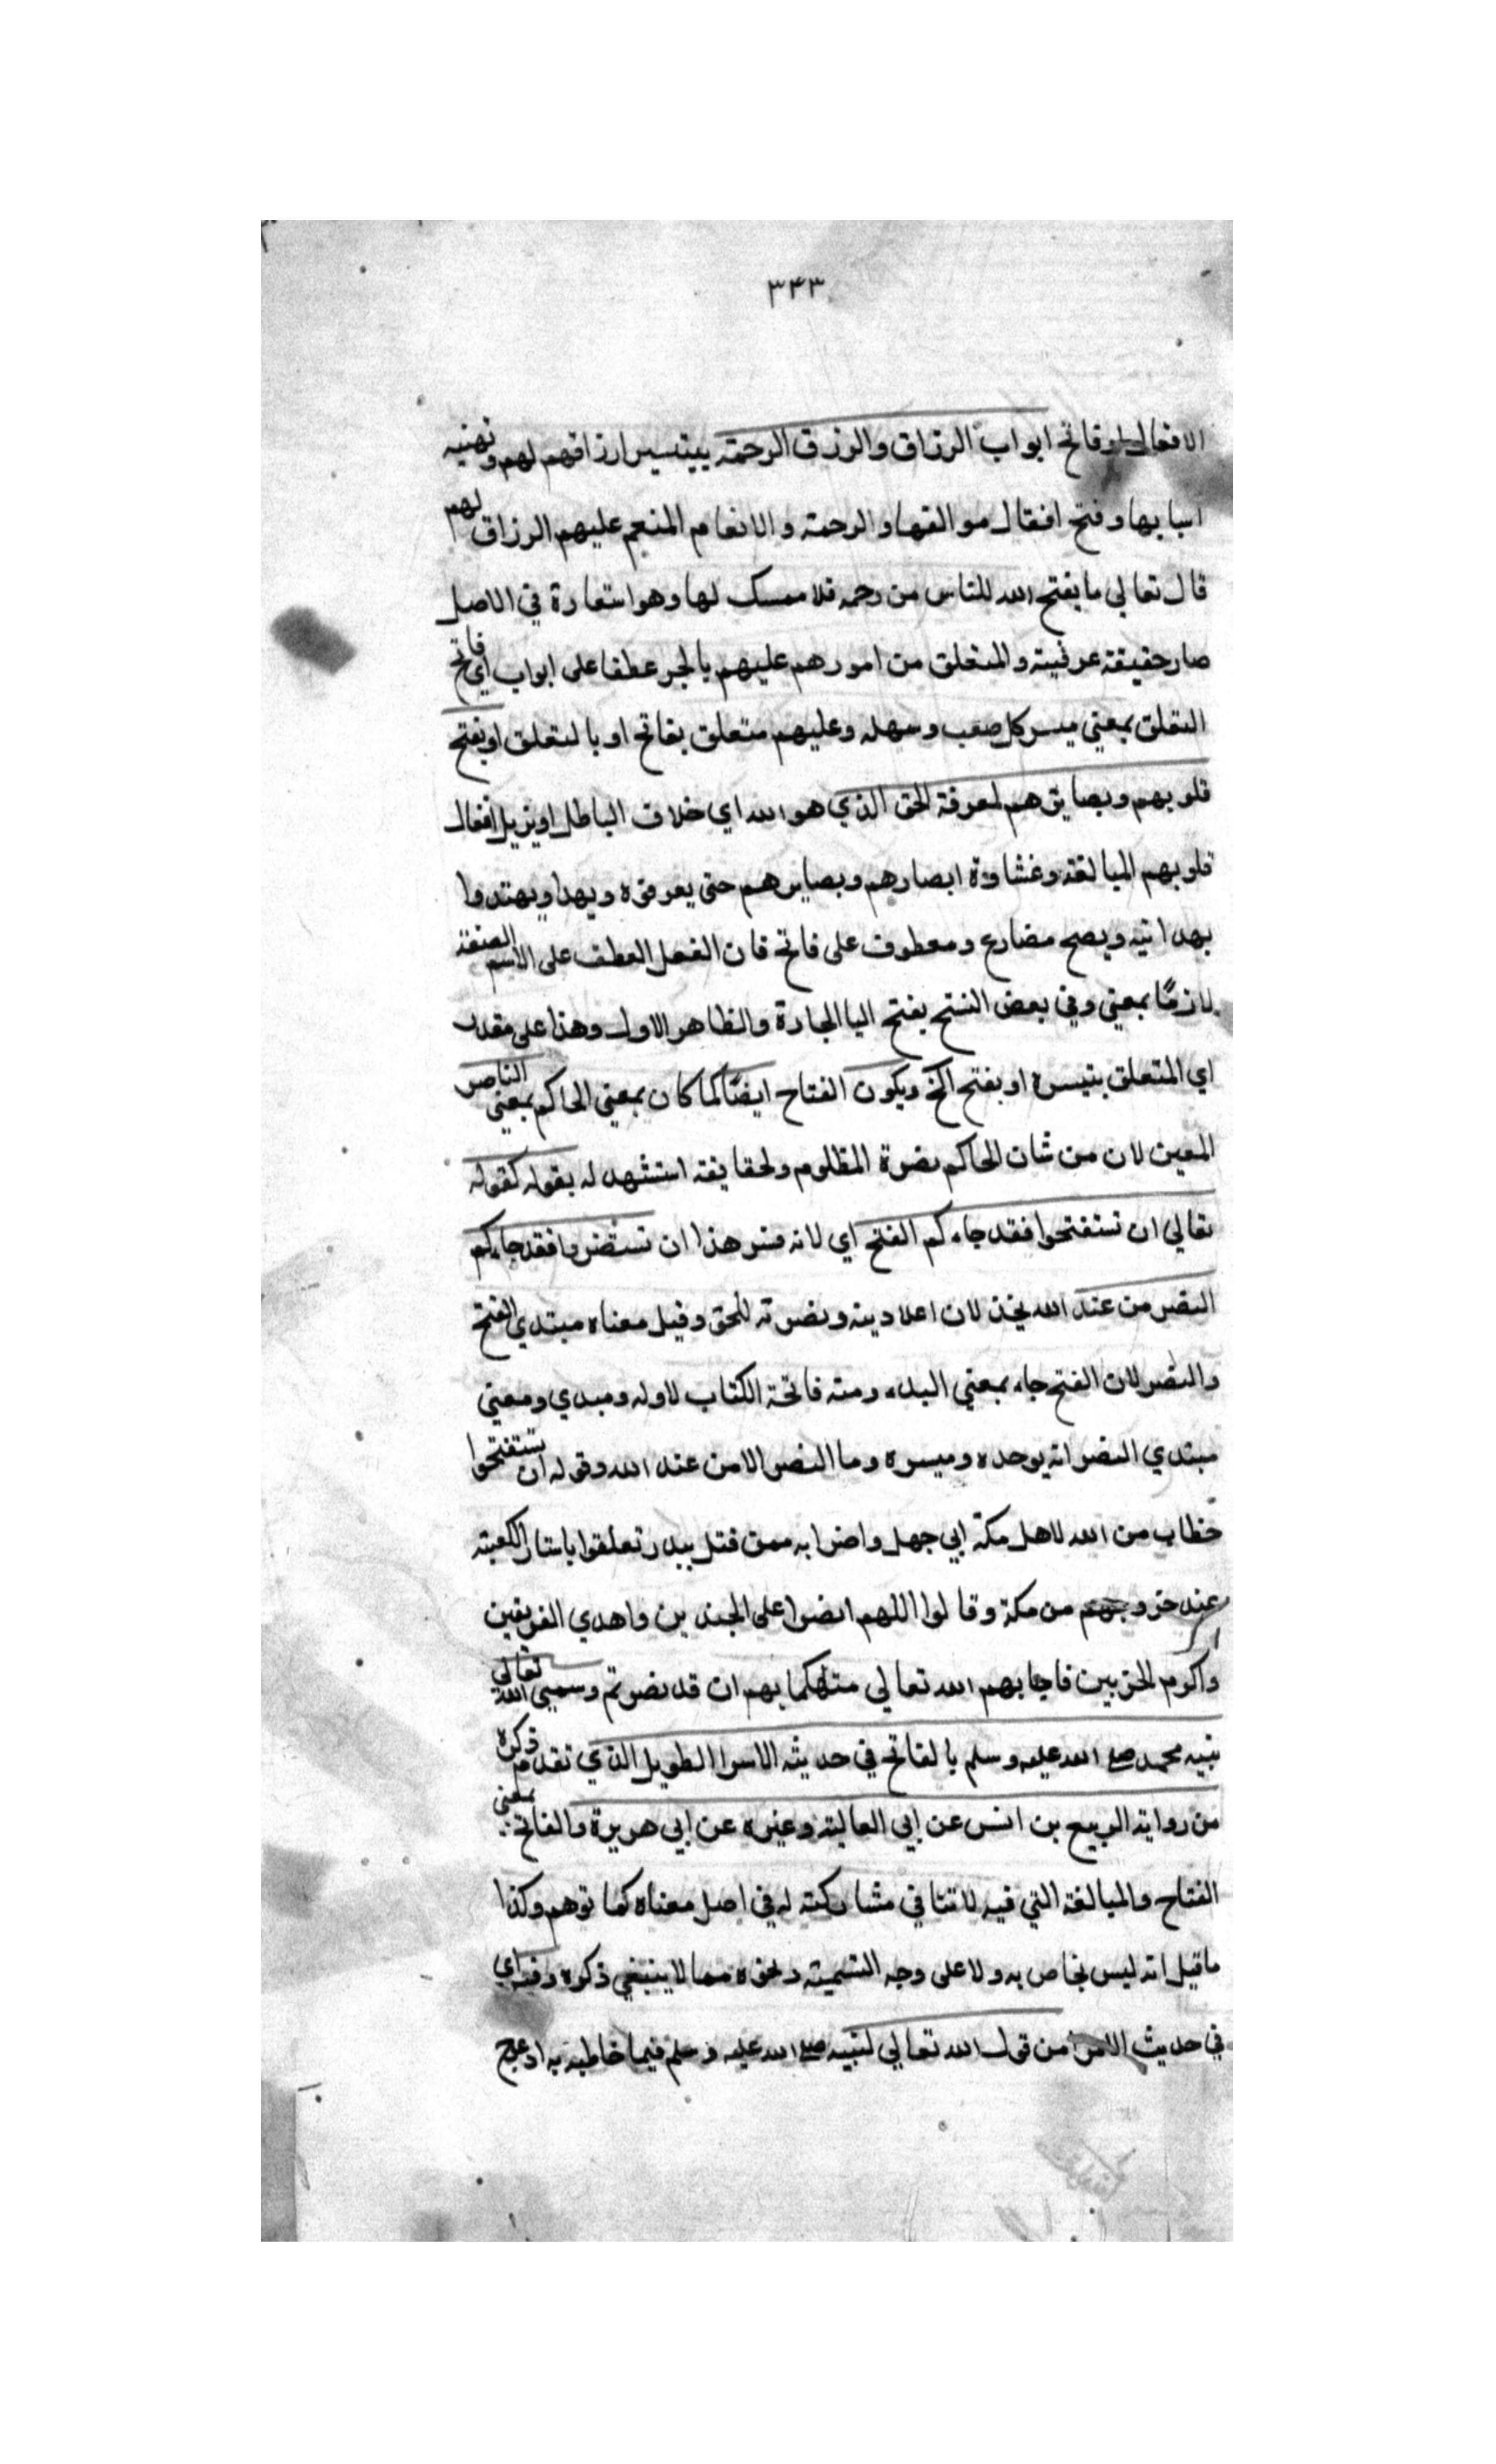 ٣٤٣
الافعال او فاتح ابواب الرزاق والرزق الرحمة بيتسير ارزاقهم لهم وتهنيه
اسبابها وفتح اقفال موالقها والرحمة والانعام المنعم عليهم الرزاق لهم
قال تعالي ما يفتح الله للناس من رحمه فلا ممسك لها وهو استعارة في الاصل
صار حقيقة عرفية والمنغلق من امورهم عليهم بالجر عطفا على ابواب اي فاتح
المنغلق بمعني ميسر كل صعب وسهله وعليهم متعلق بفاتح او بالمنغلق او يفتح
قلوبهم وبصايرهم لمعرفة الحق الذي هو الله اي خلاف الباطل او يزيل اقفال
قلوبهم المبالغة وغشاوة ابصارهم وبصايرهم حتى يعرفوه ويهدا ويهتدوا
بهدايته ويصح مضارع ومعطوف على فاتح فان الفعل العطف على الاسم الصفة
لازمًا بمعني وفي بعض النسخ بفتح اليا الجارة والظاهر الاول وهذا على مقدر
اي المتعلق بتيسره او بفتح الخ ويكون الفتاح ايضًا كما كان بمعني الحاكم بمعني الناصر
المعين لان من شان الحاكم نصرة المظلوم ولحقايقه استشهد له بقوله كقوله
تعالي ان تستفتحوا فقد جاءكم الفتح اي لانه فسر هذا ان تستنصروا فقد جاءكم
النصر من عند الله لان اعلا دينه ونصرته للحق وقيل معناه مبتدي الفتح
والنصر لان الفتح جاء بمعني البدء ومنه فاتحة الكتاب لاوله ومبدي ومعني
مبتدي النصر انه يوحده وميسره وما النصر الا من عند الله وقوله ان تستفتحوا
خطاب من الله لاهل مكة ابي جهل واضرابه ممن قتل ببدر تعلقوا باستار الكعبة
عند خروجهم من مكة وقالوا اللهم انصر اعلى الجندين واهدي الفريقين
واكرم الحزبين فاجابهم الله تعالي متهكما بهم ان قد نصرتم وسمي الله تعالي
نبيه محمد صلى الله عليه وسلم بالفاتح في حديث الاسرا الطويل الذي تقدم ذكره
من رواية الربيع بن انس عن ابي العالية وغيره عن ابي هريرة والفاتح بمعني
الفتاح والمبالغة التي فيه لا تنافي مشاركته له في اصل معناه كما توهم وكذا
ما قيل انه ليس بخاص به ولا على وجه التسمية ونحوه مما لا ينبغي ذكره وفيه اي
في حديث الاسرا من قول الله تعالي لنبيه صلى الله عليه وسلم فيما خاطبه به